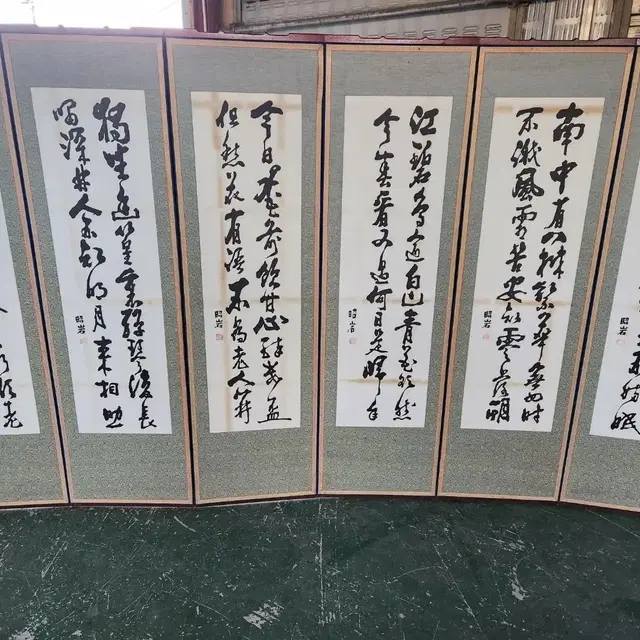 南中有八樹繁華無四時
不識風霜苦安知零落期
昭岩
江碧鳥逾白山青花欲然
今春看又過何日是歸年
昭岩
今日花前飲甘心醉數盃
但愁花有語不為老人開
昭岩
獨坐幽篁裏彈琴復長
嘯深林人不知明月來相照
昭岩